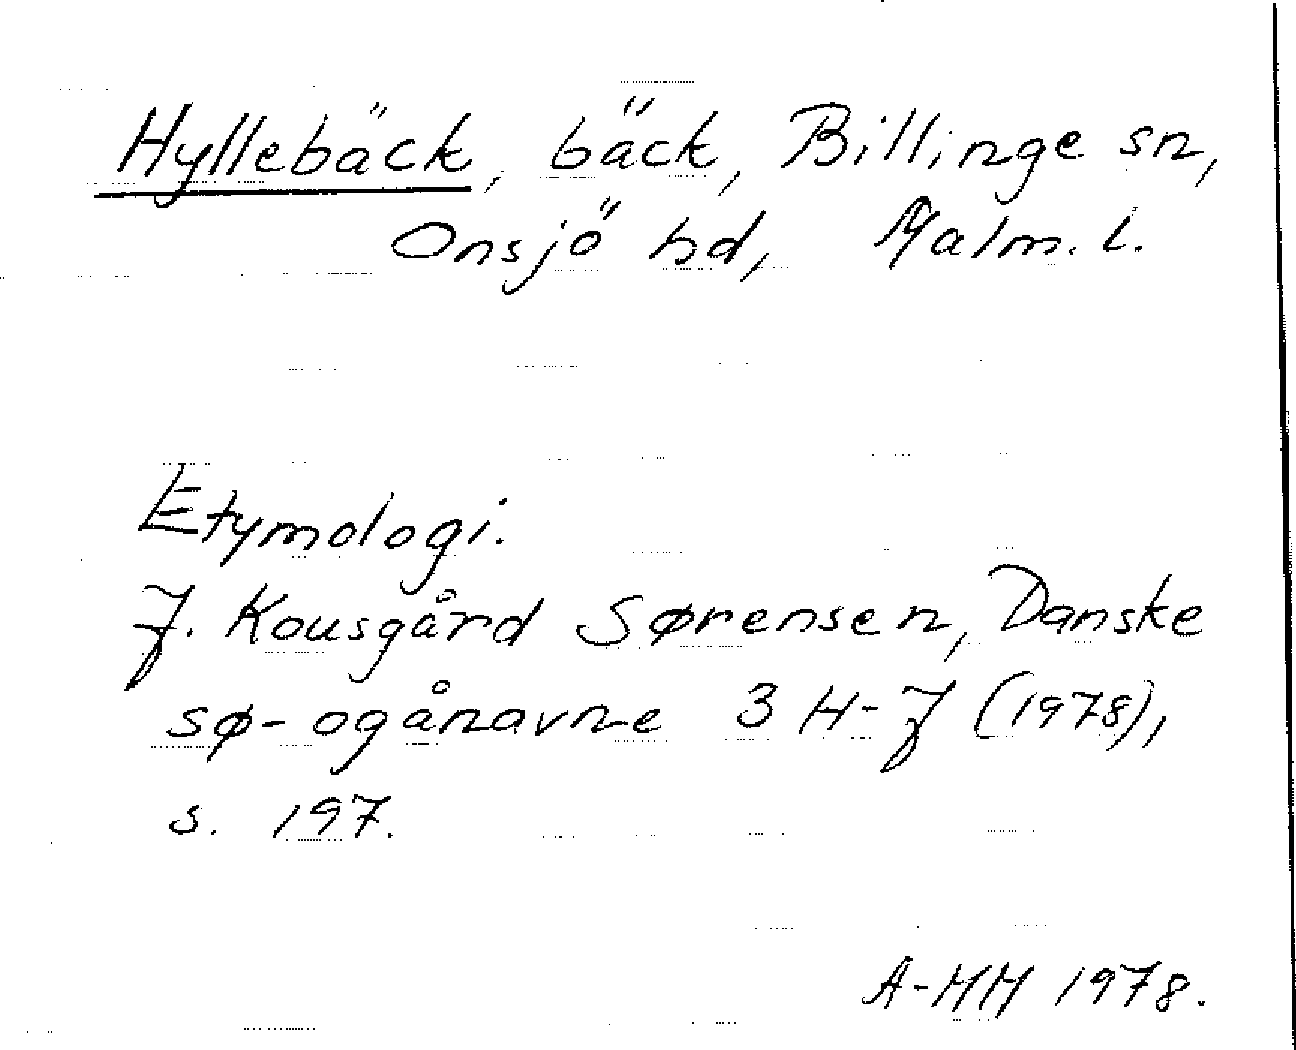 Hyllebäck, bäck, Billinge sn,
Onsjö hd, Malm. l.
Etymologi.
J. Kousgård Sørensen, Danske
sø- ogånavne 3 H-J (1978),
s. 197.
A-MM 1978.